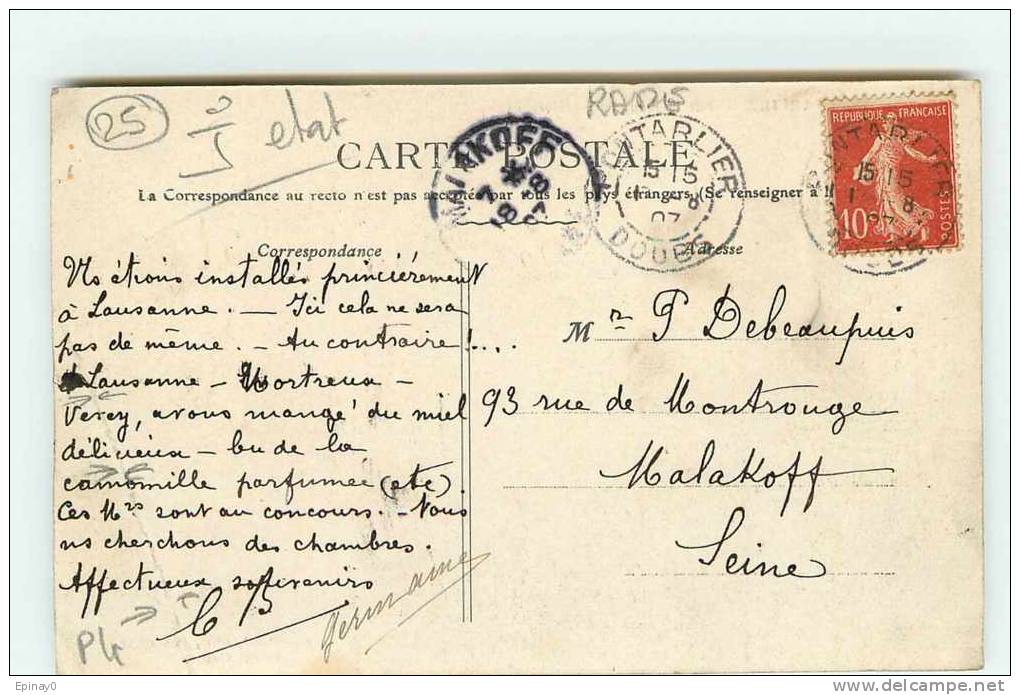 25
etat
RARE
CARTE POSTALE
La Correspondance au recto n'est pas acceptée par tous les pays étrangers (Se renseigner à l
MALAKOFF
PONTARLIER
15 15
1 - 8
07
DOUBS
RÉPUBLIQUE FRANÇAISE
10
POSTES
Correspondance
Adresse
Ns étions installés princièrement
à Lausanne. — Ici cela ne sera
pas de même. — Au contraire !....
Lausanne — Mortreux —
Verey, avons mangé du miel
délicieux — bu de la
camomille parfumée (etc)
Ces Mrs sont au concours. — Nous
ns cherchons des chambres.
Affectueux souvenirs
Germaine
Mr P Debeaupuis
93 rue de Montrouge
Malakoff
Seine
Epinay0
www.delcampe.net